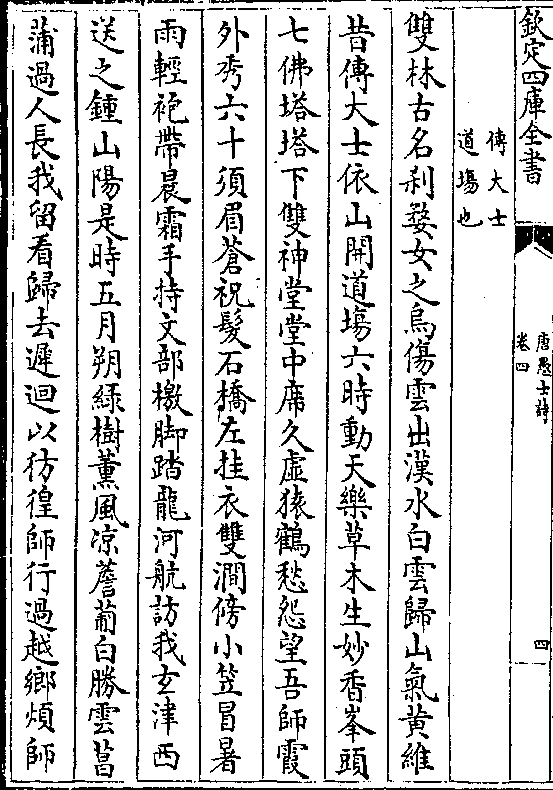 欽定四庫全書
唐愚士詩
卷四
四
傅大士
道場也
雙林古名刹婺女之烏傷雲出漢水白雲歸山氣黄維
昔傅大士依山開道塲六時動天樂草木生妙香峯頭
七佛塔塔下雙神堂堂中席久虛猿鶴愁怨望吾師霞
外秀六十須眉蒼祝髮石橋左挂衣雙澗傍小笠冒暑
雨輕袍帶晨霜手持文部檄脚踏龍河航訪我玄津西
送之鍾山陽是時五月朔緑樹薰風凉薝蔔白勝雲菖
蒲過人長我留看歸去遲迴以彷徨師行過越鄉煩師